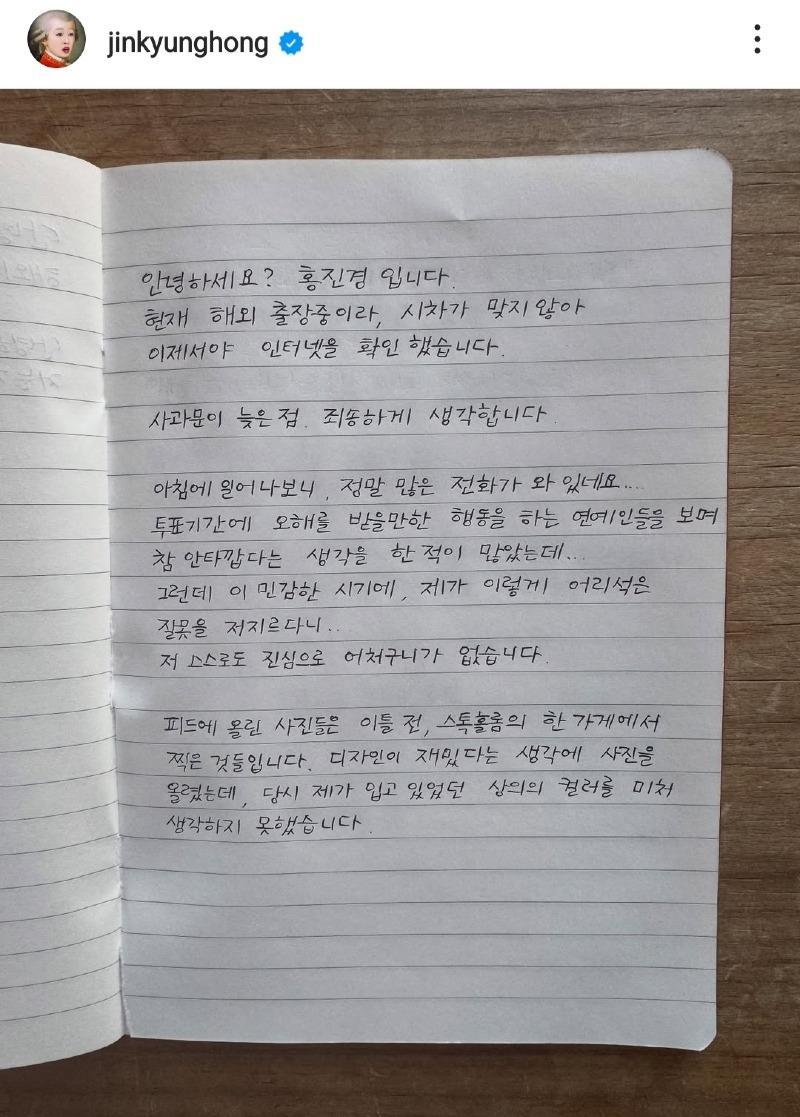 jinkyunghong
안녕하세요? 홍진경 입니다.
현재 해외 출장중이라, 시차가 맞지않아
이제서야 인터넷을 확인 했습니다.
사과문이 늦은점. 죄송하게 생각합니다.
아침에 일어나보니, 정말 많은 전화가 와 있네요...
투표기간에 오해를 받을만한 행동을 하는 연예인들을 보며
참 안타깝다는 생각을 한 적이 많았는데...
그런데 이 민감한 시기에, 제가 이렇게 어리석은
잘못을 저지르다니..
저 스스로도 진심으로 어처구니가 없습니다.
피드에 올린 사진들은 이틀 전, 스톡홀롬의 한 가게에서
찍은 것들입니다. 디자인이 재밌다는 생각에 사진을
올렸는데, 당시 제가 입고 있었던 상의의 컬러를 미처
생각하지 못했습니다.